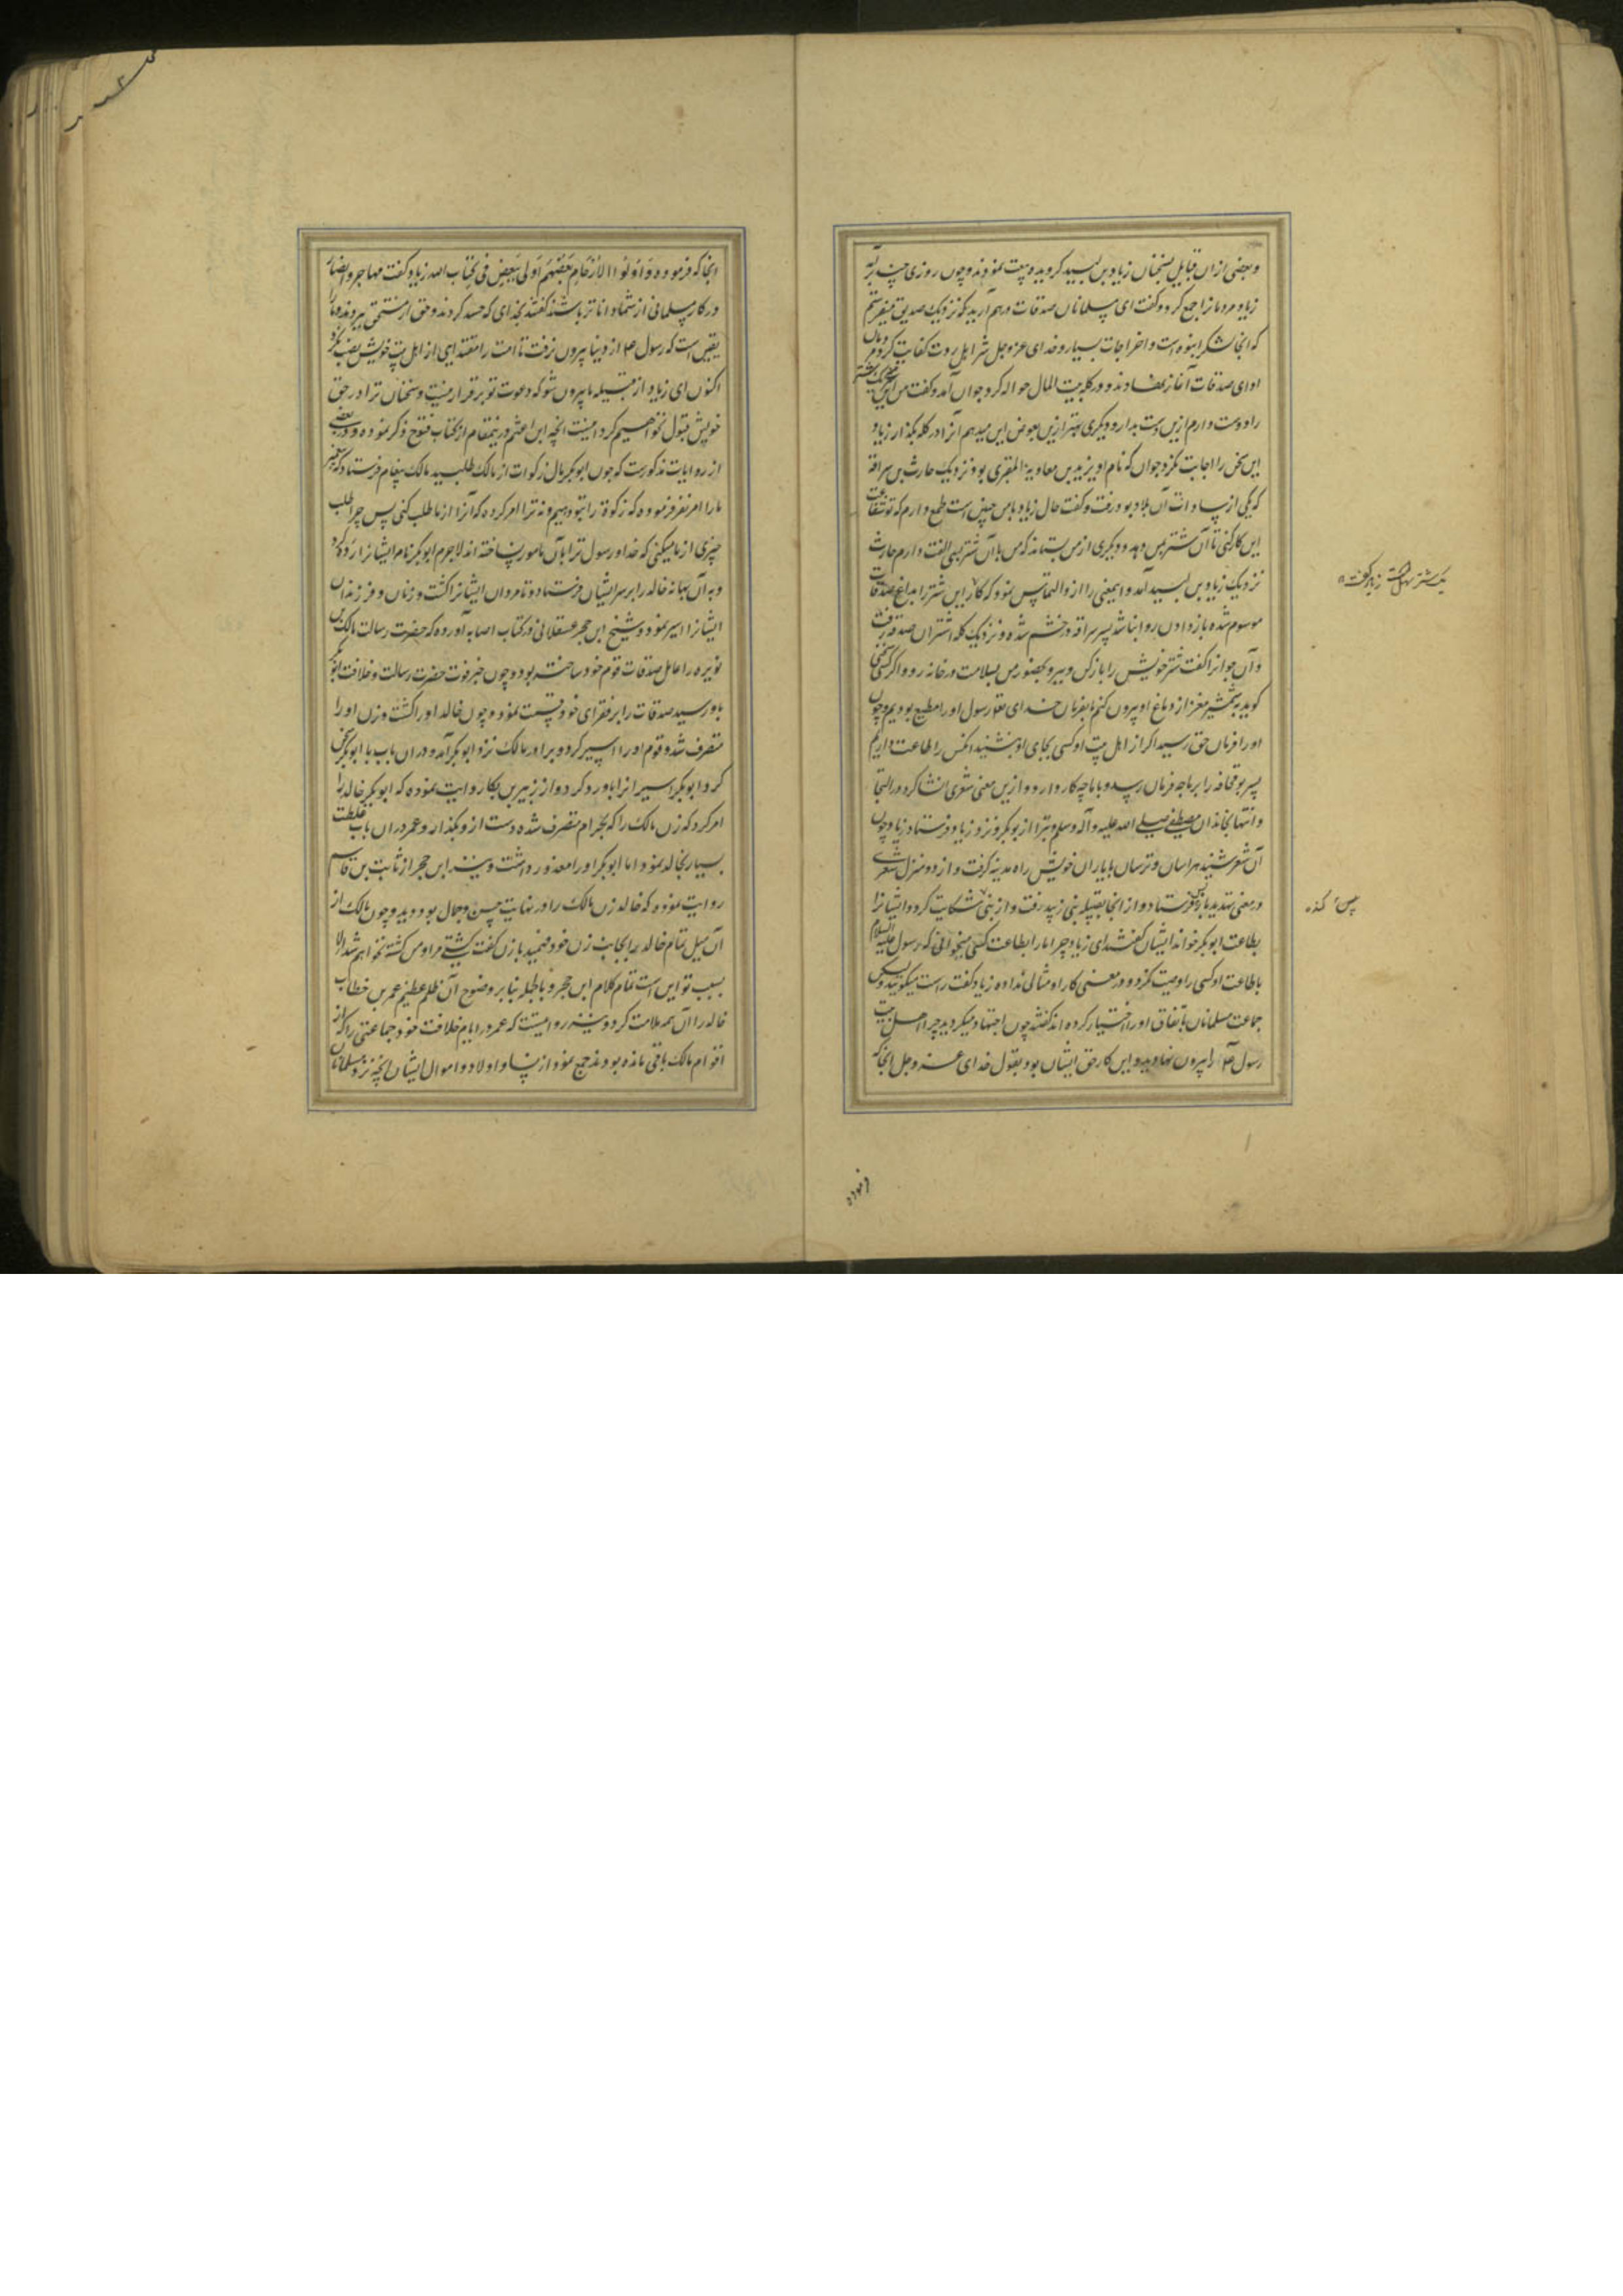 وبعضی ازان قبایل بسخنان زیاد بن لبید کرویده بیعت نمودند وچون روزی چند برآمد
زیاد مردمانرا جمع کرد وگفت ای مسلمانان صدقات درهم آرید که نزدیک صدیق میفرستم
که آنجا لشکر انبوه است واخراجات بسیار وخدای عزوجل شر اهل ردت کفایت کرد مردمان
ادای صدقات آغاز نهادند ودر کله بیت المال حواله کرد جوان آمد وگفت من این شتر
را دوست دارم ازین دست بدار ودیگری بهتر ازین بعوض این میدهم آنرا در کله بگذار زیاد
این سخن را اجابت نکرد جوان که نام او یزید بن معاویة المقری بود نزدیک حارث بن سراقه
که یکی از سادات آن بلاد بود رفت وگفت حال زیاد با من چنین است طمع دارم که تو شفاعت
این کار کنی تا آن شتر بمن دهد ودیگری از من بستاند که من با آن شتر بسی الفت دارم حارث
نزدیک زیاد بن لبید آمد واینمعنی را ازو التماس نمود که کار این شتر را بداغ صدقات
موسوم شده باز دادن روا نباشد پسر سراقه در خشم شده ونزدیک کله اشتران صدقه رفت
وآن جوانرا گفت شتر خویش را باز کن وببر وبحضور من بسلامت در خانه رو واگر کسی سخنی
گوید بشمشیر مغز از دماغ او بیرون کنم ما بفرمان خدای تعا رسول او را مطیع بودیم وچون
او را فرمان حق رسید اگر از اهل بیت او کسی بجای او بنشیند آنکس را طاعت داریم
پسر بوقحافه را بر ما چه فرمان رسد وبا ما چه کار دارد وازین معنی شعری انشا کرد در التجا
وانتها بخاندان مصطفی صلی الله علیه وآله وسلم وتبرا از بوبکر ونزد زیاد فرستاد زیاد چون
آن شعر شنید هراسان وترسان با یاران خویش راه مدینه گرفت واز دو منزل شعری
در معنی تهدید باز پس فرستاد واز آنجا بقبیله بنی زبید رفت واز بنی شکایت کرد وایشانرا
بطاعت ابوبکر خواند ایشان گفتند ای زیاد چرا ما را بطاعت کسی میخوانی که رسول علیه السلام
بطاعت او کسی را وصیت نکرد ودر معنی کار او مثالی نداده زیاد گفت راست میگویید ولیکن
جماعت مسلمانان باتفاق او را اختیار کرده اند گفتند چون اجتهاد میکردید چرا اهل بیت
رسول ص را بیرون نهادید واین کار حق ایشان بود بقول خدای عزوجل آنجا که
یک شتر
زیاد گفت
پس
آنجا که فرموده وَاُولُوا الاَرْحَامِ بَعْضُهُمْ اَولی بِبَعْضٍ فِی کِتَاب الله زیاد گفت مهاجر وانصار
در کار مسلمانی از شما داناتر باشند گفتند بخدای که حسد کردند وحق از مستحق ببردند وما را
یقین است که رسول ص از دنیا بیرون نرفت تا امت را مقتدایی از اهل بیت خویش نصب نکرد
اکنون ای زیاد از قبیله ما بیرون شو که دعوت تو برقرار نیست وسخنان ترا در حق
خویش قبول نخواهیم کرد اینست آنچه ابن اعثم درینمقام از کتاب فتوح ذکر نموده ودر بعضی
از روایات مذکورست که چون ابوبکر مال زکوات از مالک طلبید مالک پیغام فرستاد که پیغمبر
ما را امر نفرموده که زکوة را بتو دهیم ونه ترا امر کرده که آنرا از ما طلب کنی پس چرا طلب
چیزی از ما میکنی که خدا ورسول ترا بآن مامور نساخته اند لاجرم ابوبکر نام ایشانرا رده کرد
وبه آن بهانه خالد را بر سر ایشان فرستاد وتا مردان ایشانرا کشت وزنان وفرزندان
ایشانرا اسیر نمود وشیخ ابن حجر عسقلانی در کتاب اصابه آورده که حضرت رسالت مالک بن
نویره را عامل صدقات قوم خود ساخته بود وچون خبر فوت حضرت رسالت وخلافت ابوبکر
باو رسید صدقات را بر فقرای خود قسمت نمود وچون خالد او را کشت وزن او را
متصرف شد وقوم او را اسیر کرد وبرادر مالک نزد ابوبکر آمد ودر ان باب با ابوبکر سخن
کرد ابوبکر اسیرانرا باو رد کرد واز زبیر بن بکار روایت نموده که ابوبکر خالد را
امر کرد که زن مالک را که بحرام متصرف شده دست ازو بگذارد وعمر در ان باب غلظت
بسیار بخالد نمود اما ابوبکر او را معذور داشت ونیز ابن حجر از ثابت بن قاسم
روایت نموده که خالد زن مالک را در نهایت حسن وجمال بود دید وچون مالک از
آن میل تمام خالد را بجانب زن خود فهمید با زن گفت کشتی مرا ومن کشته نخواهم شد الا
بسبب تو این است تمام کلام ابن حجر وبالجمله بنابر وضوح آن ظلم عظیم عمر بن خطاب
خالد را آن همه ملامت کرد ونیز روایتست که عمر در ایام خلافت خود جماعتی را که از
اقوام مالک باقی مانده بودند جمع نمود از نسا واولاد واموال ایشان آنچه نزد مسلمانان